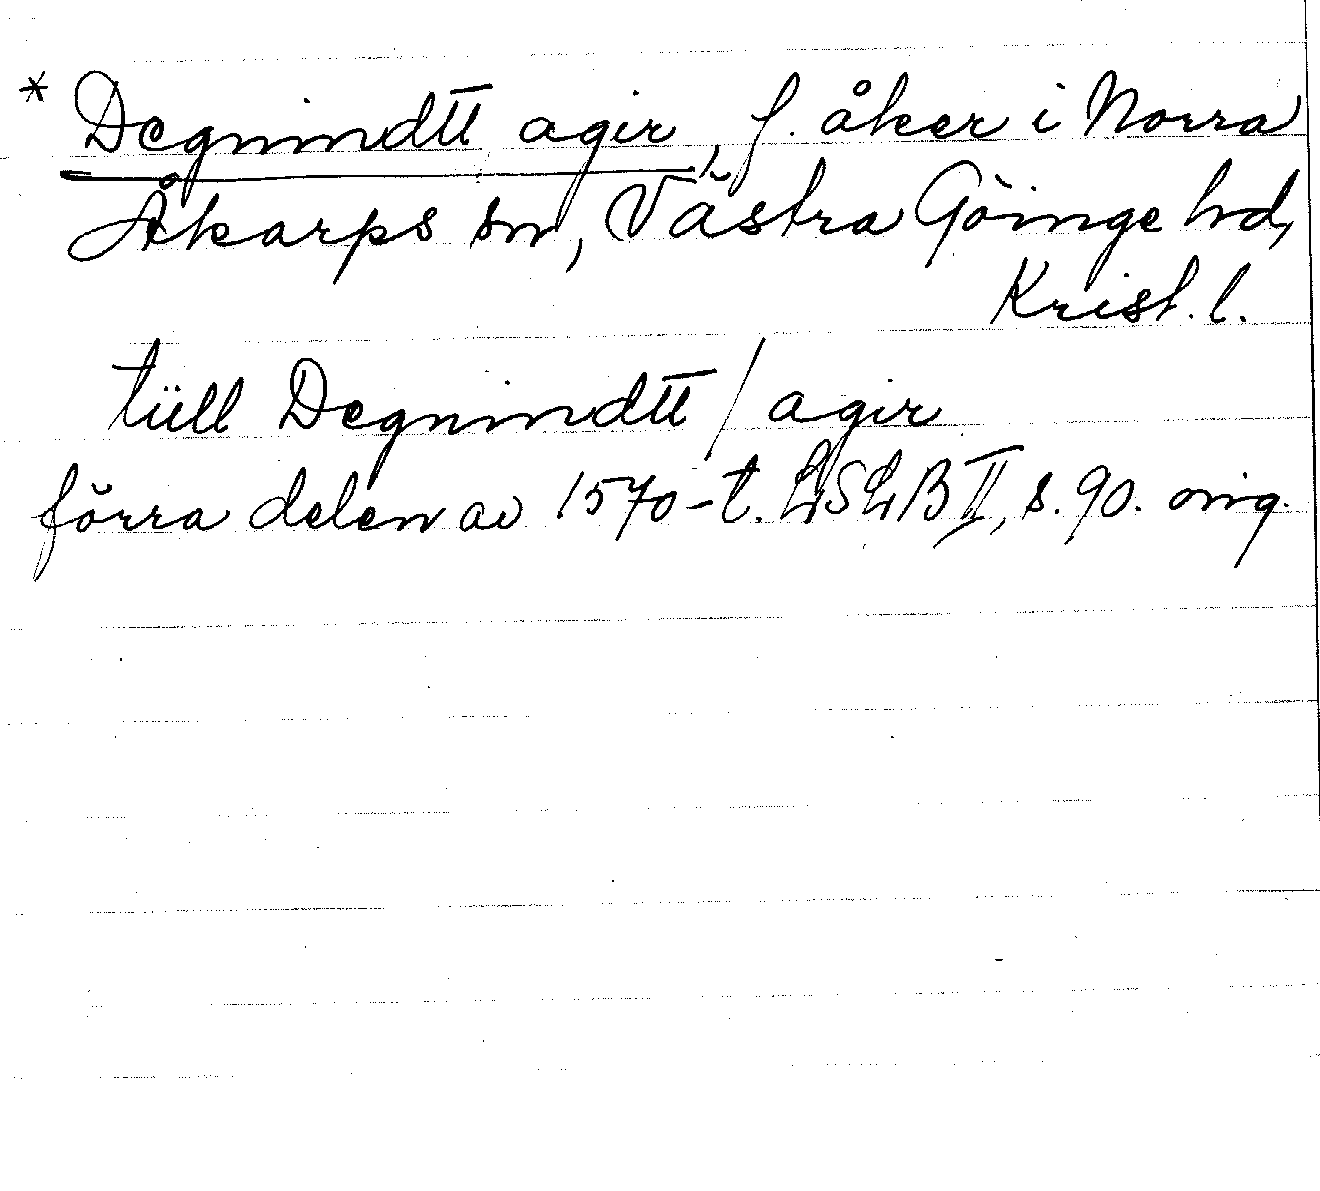 * Degnindtt agir, f. åker i Norra
Åkarps sn, Västra Göinge hd,
Krist. l.
tüll Degnindtt / agir
förra delen av 1570-t. LSLB II, s. 90. orig.